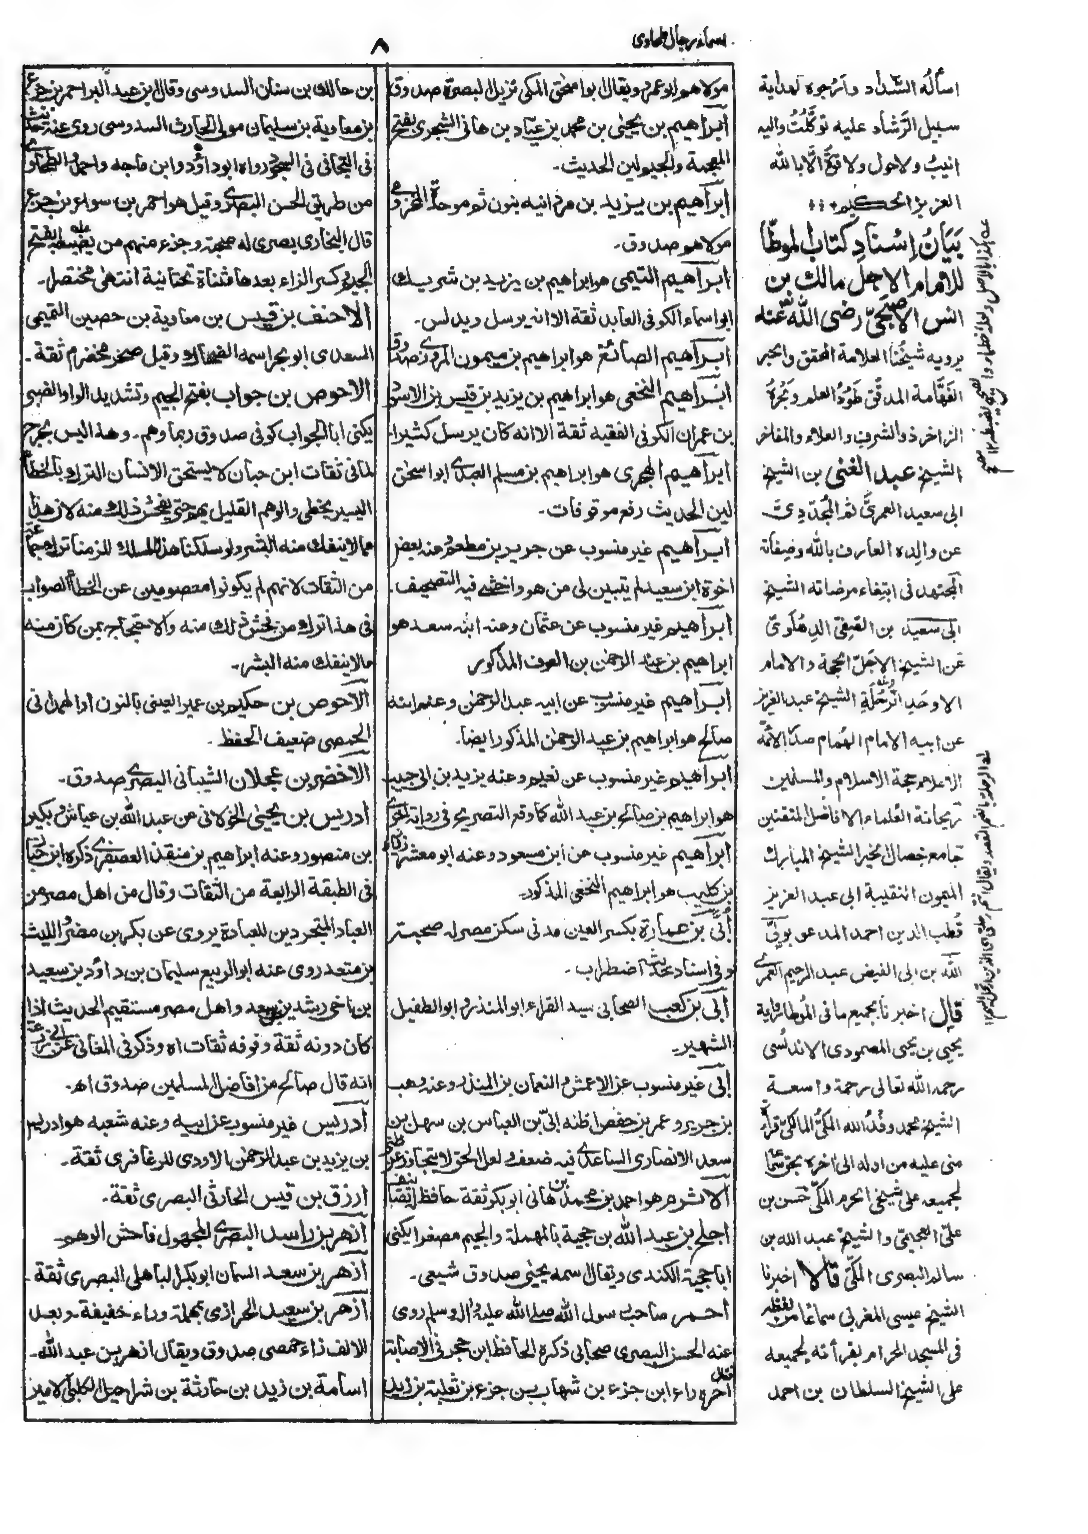 اسماء رجال طحاوی
۸
اسألُه السَّداد وارجوه لهداية
سبيل الرَّشاد عليه توكّلتُ واليه
انيبُ ولا حول ولا قوّة الّا بالله
العزيز الحكيم
بَيَانُ إسْنادِ كتابُ الموطّأ
للامام الاجلّ مالك بن
انس الاصبَحیّ رضی الله عنه
يرويه شيخُنا العلامة المحقق والحبر
الفهّامة المدقق طَودُ العلم و بحرُه
الزاخر ذو الشرف والعلاء والمفاخر
الشيخ عبد الغنی بن الشيخ
ابی سعيد العمریّ ثم المجدّدیّ
عن والده العارف بالله وصفاته
المجتهد فی ابتغاء مرضاته الشيخ
ابی سعيد بن الصفی الدهلوی
عن الشيخ الاجلّ الحجة والامام
الاوحد الرُّحلة الشيخ عبد العزيز
عن ابيه الامام الهُمام صدر الائمّة
الاعلام حجة الاسلام والمسلمين
ريحانة العُلماء الافاضل المتقنين
جامع خصال الخير الشيخ المبارك
الميمون النقيبة ابی عبد العزيز
قُطب الدين احمد المدعو بولیّ
الله بن ابی الفيض عبد الرحيم العمری
قال اخبرنا بجميع ما فی الموطا رواية
يحيی بن يحيی المصمودی الاندلسی
رحمه الله تعالی رحمة واسعة
الشيخ محمد وفدُ الله المكیُّ المالكیُّ قراءة
منی عليه من اوله الی اخره بحق سماعه
لجميعه علی شيخَی الحرم المكیّ حسن بن
علیّ العجيمیّ والشيخ عبد الله بن
سالم البصری المكیّ قالا اخبرنا
الشيخ عيسی المغربی سماعًا من لفظه
فی المسجد الحرام بقرأته لجميعه
علی الشيخ السلطان بن احمد
مولاهم ابو عمرو ويقال ابو اسحٰق المكی نزيل البصرة صدوق
ابراهيم بن يحيیٰ بن محمد بن عبّاد بن هانی الشجری بفتح
المعجمة والجيم لين الحديث۔
ابراهيم بن يزيد بن مردانبه بنون ثم موحدة المخزومی
مولاهم صدوق۔
ابراهيم التيمی هو ابراهيم بن يزيد بن شريك
ابو اسماء الكوفی العابد ثقة الا انه يرسل ويدلس۔
ابراهيم الصائغ هو ابراهيم بن ميمون المروزی صدوق
ابراهيم النخعی هو ابراهيم بن يزيد بن قيس بن الاسود
بن عمران الكوفی الفقيه ثقة الا انه كان يرسل كثيرا۔
ابراهيم الهجری هو ابراهيم بن مسلم العبدی ابو اسحٰق
لين الحديث رفع موقوفات۔
ابراهيم غير منسوب عن جرير بن مطعم وعنه بعض
اخوة ابن سعيد لم يتبين لی من هو واخشی فيه التصحيف۔
ابراهيم غير منسوب عن عثمان وعنه ابنه سعد هو
ابراهيم بن عبد الرحمٰن بن العوف المذكور
ابراهيم غير منسوب عن ابيه عبد الرحمٰن وعنه ابنه
صالح هو ابراهيم بن عبد الرحمٰن المذكور ايضا۔
ابراهيم غير منسوب عن نعيم وعنه يزيد بن ابی حبيب
هو ابراهيم بن صالح بن عبد الله كما وقع التصريح فی رواية اخری
ابراهيم غير منسوب عن ابن مسعود وعنه ابو معشر زياد
بن كليب هو ابراهيم النخعی المذكور۔
أبیّ بن عمارة بكسر العين مدنی سكن مصر له صحبة
وفی اسناد حديثه اضطراب۔
أبی بن كعب الصحابی سيد القراء ابو المنذر و ابو الطفيل
الشهير۔
أبی غير منسوب عن الاعمش والنعمان بن المنذر وعنه وهب
بن جرير وعمر بن حفص اظنه ابیّ بن العباس بن سهل بن
سعد الانصاری الساعدی فيه ضعف ولعل الحق لا يتجاوز عن ظنی
الاثرم هو احمد بن محمد بن هانی ابو بكر ثقة حافظ له تصانيف
اجلح بن عبد الله بن حجية بالمهملة والجيم مصغرا يكنی
ابا حجية الكندی ويقال اسمه يحيیٰ صدوق شيعی۔
احمر صاحب رسول الله صلی الله عليه واله وسلم روی
عنه الحسن البصری صحابی ذكره الحافظ ابن حجر فی الاصابة فقال
اخره راء ابن جزء بن شهاب بن جزء بن ثعلبة بن زيد
بن مالك بن سنان السدوسی وقال ابن عبد البر احمر بن جزء
بن معاوية بن سليمان مولی الحارث السدوسی روی عنه حديث
فی التجافی فی السجود رواه ابو داؤد وابن ماجه واحمد والطحاوی
من طريق الحسن البصری وقيل هو احمر بن سواء بن جزء
قال البخاری بصری له صحبة وجزء منهم من يضبطه بفتح
الجيم وكسر الزاء بعدها مثناة تحتانية انتهی مختصل۔
الاحنف بن قيس بن معاوية بن حصين التميمی
السعدی ابو بحر اسمه الضحاك وقيل صخر مخضرم ثقة۔
الاحوص بن جواب بفتح الجيم وتشديد الواو الضبی
يكنی ابا الجواب كوفی صدوق ربما وهم۔ وهذا ليس بجرح
لما فی ثقات ابن حبان لا يستحق الانسان الترك بالخطأ
اليسير يخطی والوهم القليل يهم حتی يفحش ذلك منه لان هذا
مما لا ينفك منه البشر ولو سلكنا هذا المسلك للزمنا ترك جماعة
من الثقات لانهم لم يكونوا معصومين عن الخطأ الصواب
فی هذا ترك من فحش ذلك منه والاحتجاج بمن كان منه
ما لا ينفك منه البشر۔
الاحوص بن حكيم بن عمير العنسی بالنون او الهمدانی
الحمصی ضعيف الحفظ۔
الاخضر بن عجلان الشيبانی البصری صدوق۔
ادريس بن يحيیٰ الخولانی عن عبد الله بن عياش وبكير
بن منصور وعنه ابراهيم بن منقذ العصفری ذكره ابن حبان
فی الطبقة الرابعة من الثقات وقال من اهل مصر من
العباد المتجردين للعبادة يروی عن بكر بن مضر والليث
بن سعد روی عنه ابو الربيع سليمان بن داؤد بن سعيد
بن اخی رشدين بن سعد واهل مصر مستقيم الحديث اذا
كان دونه ثقة وفوقه ثقات اه وذكر فی المغانی عن ابی زرعة
انه قال صالح من افاضل المسلمين صدوق اه۔
ادريس غير منسوب عن ابيه وعنه شعبه هو ادريس
بن يزيد بن عبد الرحمٰن الاودی الزعافری ثقة۔
ارزق بن قيس الحارثی البصری ثقة۔
ازهر بن راسد البصری المجهول فاحش الوهم۔
ازهر بن سعد السمان ابو بكر الباهلی البصری ثقة۔
ازهر بن سعيد الحرازی بمهملة وراء خفيفة۔ وبعد
الالف زاء حمصی صدوق ويقال ازهر بن عبد الله۔
اسامة بن زيد بن حارثة بن شراحيل الكلبی الامير